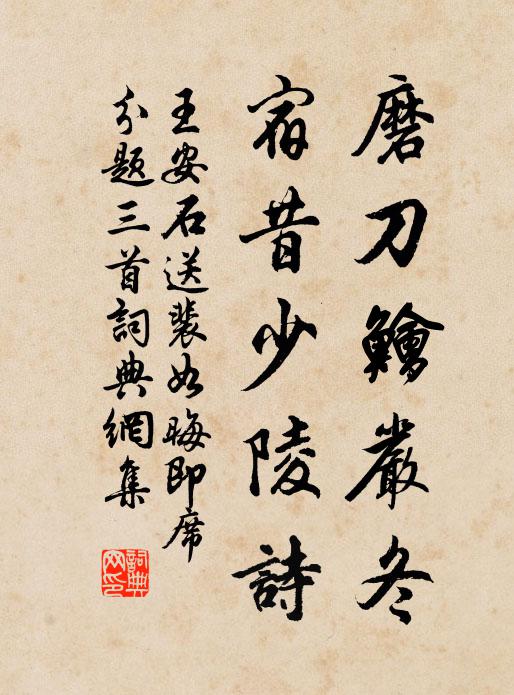 磨刀鱠嚴冬
宿昔少陵詩
王安石送裴如晦即席
分題三首詞典網集
詞典
网印